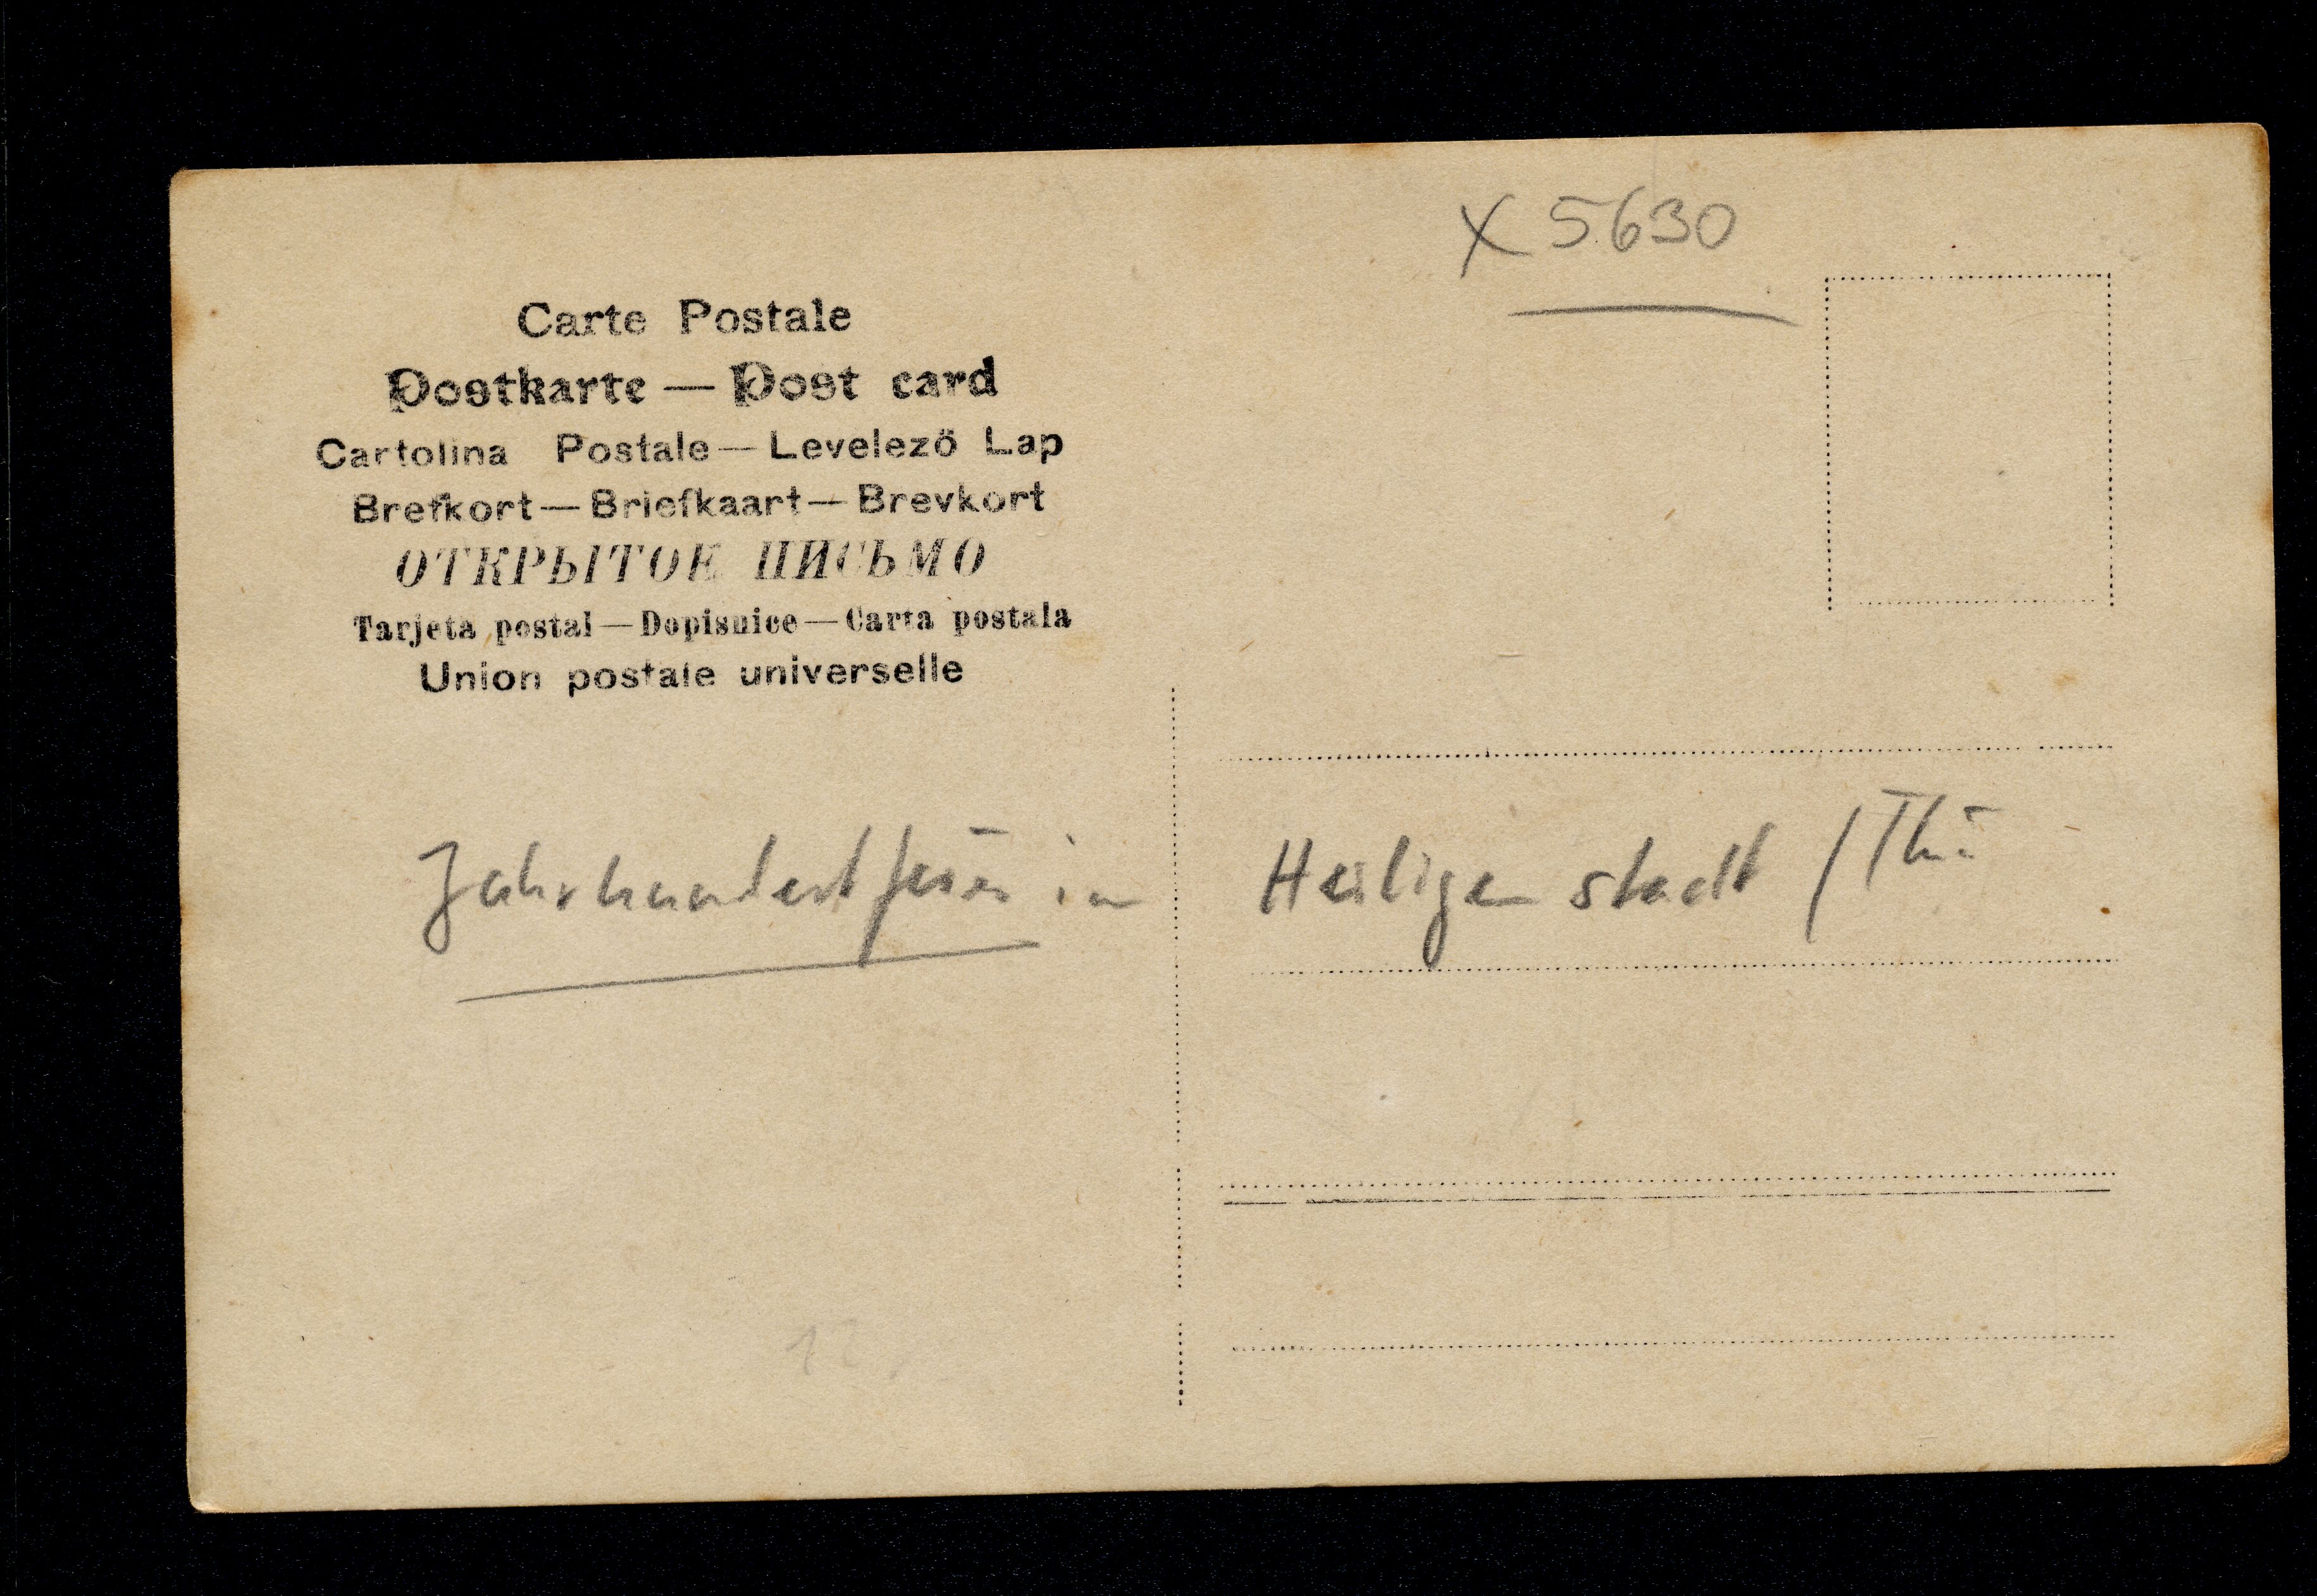 X 5630
Carte Postale
Postkarte — Post card
Cartolina Postale — Levelező Lap
Brefkort — Briefkaart — Brevkort
ОТКРЫТОЕ ПИСЬМО
Tarjeta postal — Dopisnice — Carta postala
Union postale universelle
Jahrhundertfeier in Heiligenstadt / Thü